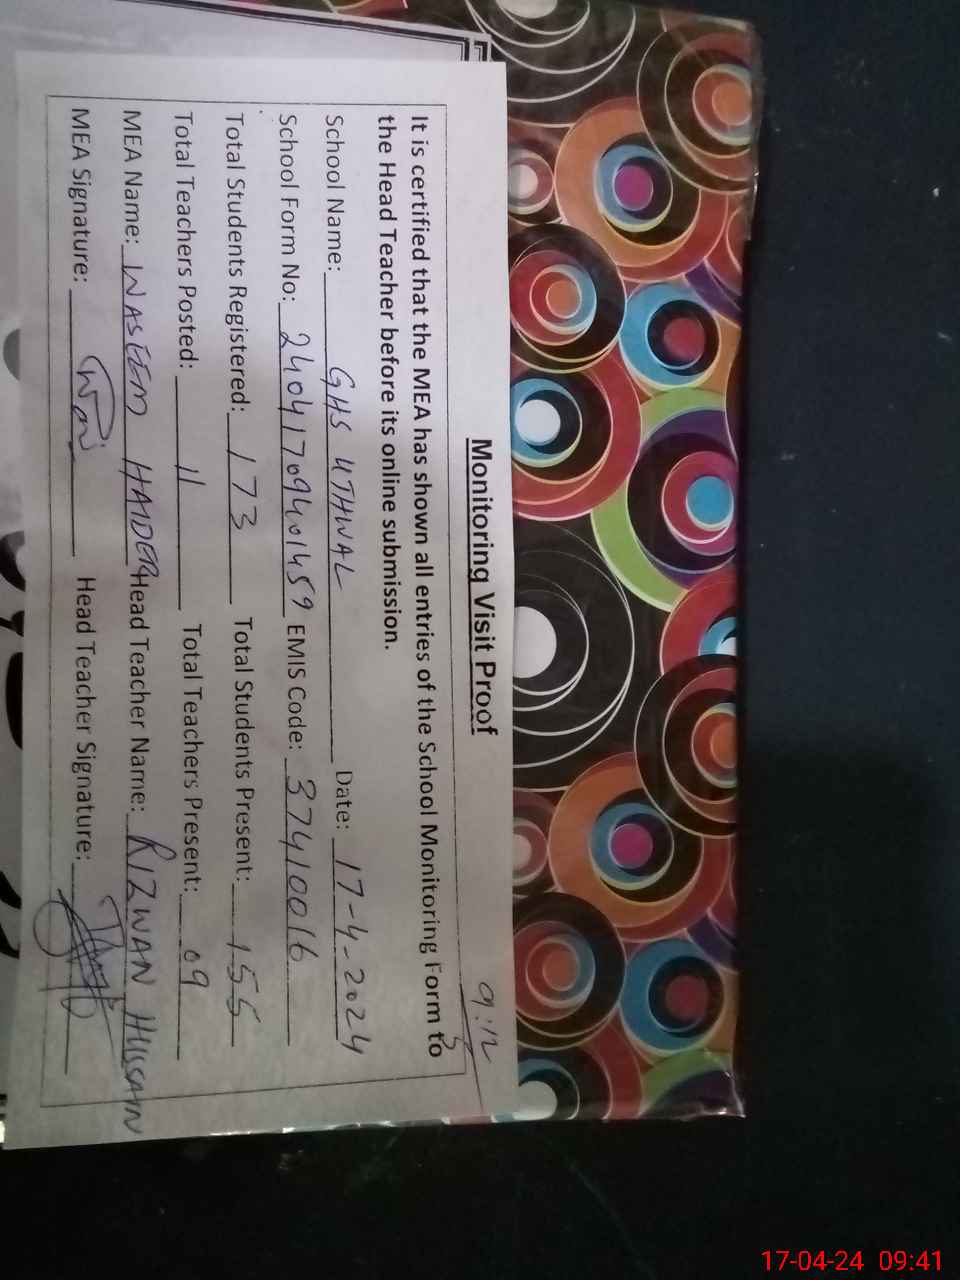 Monitoring Visit Proof
9:12
It is certified that the MEA has shown all entries of the School Monitoring Form to
the Head Teacher before its online submission.
School Name: GHS UTHWAL Date: 17-4-2024
School Form No: 24041709401459 EMIS Code: 37410016
Total Students Registered: 173 Total Students Present: 155
Total Teachers Posted: 11 Total Teachers Present: 09
MEA Name: WASEEM HAIDER Head Teacher Name: RIZWAN HUSSAIN
MEA Signature: Head Teacher Signature:
17-04-24 09:41